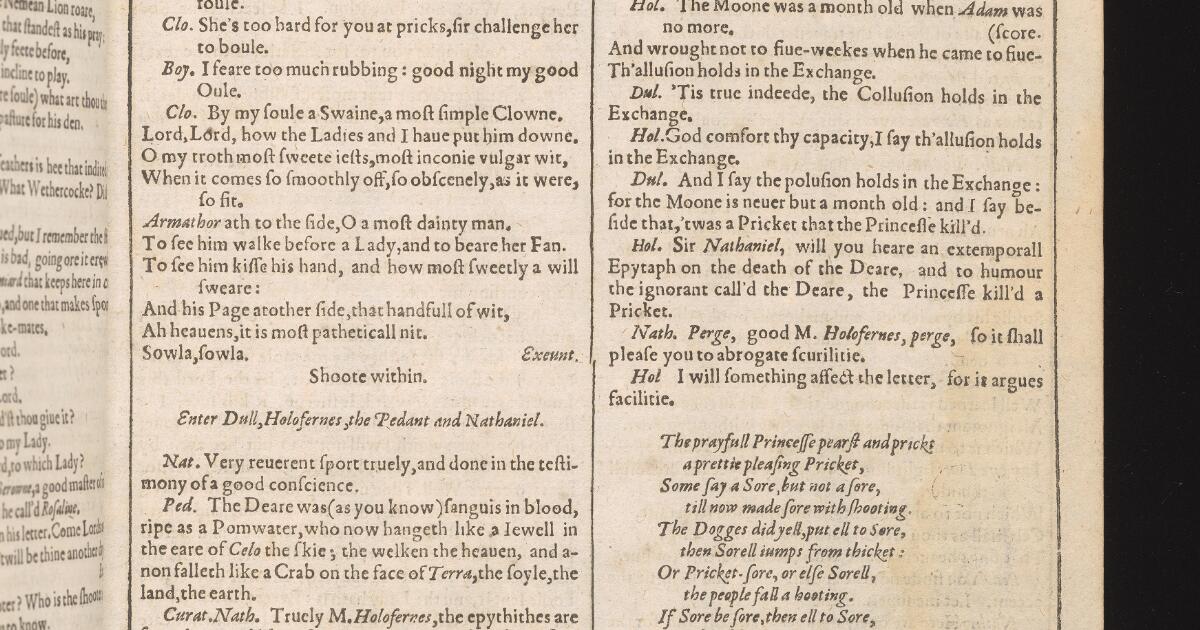 Nemean Lion roare,
that ſtandeſt as his pray:
ly feete before,
incline to play.
re ſoule) what art thou
paſture for his den.
feathers is hee that
What Wethercocke?
ued, but I remember the
is bad, going ore it
that keeps here in
, and one that makes
ke-mates.
ord.
et?
Lord.
d'ſt thou giue it?
o my Lady.
rd, to which Lady?
a good maſter
he call'd Roſaline,
n his letter. Come
twill be thine another
oter? Who is the
to know.
ſoule.
Clo. She's too hard for you at pricks, ſir challenge her
to boule.
Boy. I feare too much rubbing: good night my good
Oule.
Clo. By my ſoule a Swaine, a moſt ſimple Clowne.
Lord, Lord, how the Ladies and I haue put him downe.
O my troth moſt ſweete ieſts, moſt inconie vulgar wit,
When it comes ſo ſmoothly off, ſo obſcenely, as it were,
ſo fit.
Armathor ath to the ſide, O a moſt dainty man.
To ſee him walke before a Lady, and to beare her Fan.
To ſee him kiſſe his hand, and how moſt ſweetly a will
ſweare:
And his Page atother ſide, that handfull of wit,
Ah heauens, it is moſt patheticall nit.
Sowla, ſowla. Exeunt.
Shoote within.
Enter Dull, Holofernes, the Pedant and Nathaniel.
Nat. Very reuerent ſport truely, and done in the teſti-
mony of a good conſcience.
Ped. The Deare was (as you know) ſanguis in blood,
ripe as a Pomwater, who now hangeth like a Iewell in
the eare of Celo the ſkie; the welken the heauen, and a-
non falleth like a Crab on the face of Terra, the ſoyle, the
land, the earth.
Curat. Nath. Truely M. Holofernes, the epythithes are
Hol. The Moone was a month old when Adam was
no more. (ſcore.
And wrought not to fiue-weekes when he came to fiue-
Th'alluſion holds in the Exchange.
Dul. 'Tis true indeede, the Colluſion holds in the
Exchange.
Hol. God comfort thy capacity, I ſay th'alluſion holds
in the Exchange.
Dul. And I ſay the poluſion holds in the Exchange:
for the Moone is neuer but a month old: and I ſay be-
ſide that, 'twas a Pricket that the Princeſſe kill'd.
Hol. Sir Nathaniel, will you heare an extemporall
Epytaph on the death of the Deare, and to humour
the ignorant call'd the Deare, the Princeſſe kill'd a
Pricket.
Nath. Perge, good M. Holofernes, perge, ſo it ſhall
pleaſe you to abrogate ſcurilitie.
Hol I will ſomething affect the letter, for it argues
facilitie.
The prayfull Princeſſe pearſt and prickt
a prettie pleaſing Pricket,
Some ſay a Sore, but not a ſore,
till now made ſore with ſhooting.
The Dogges did yell, put ell to Sore,
then Sorell iumps from thicket:
Or Pricket-ſore, or elſe Sorell,
the people fall a hooting.
If Sore be ſore, then ell to Sore,